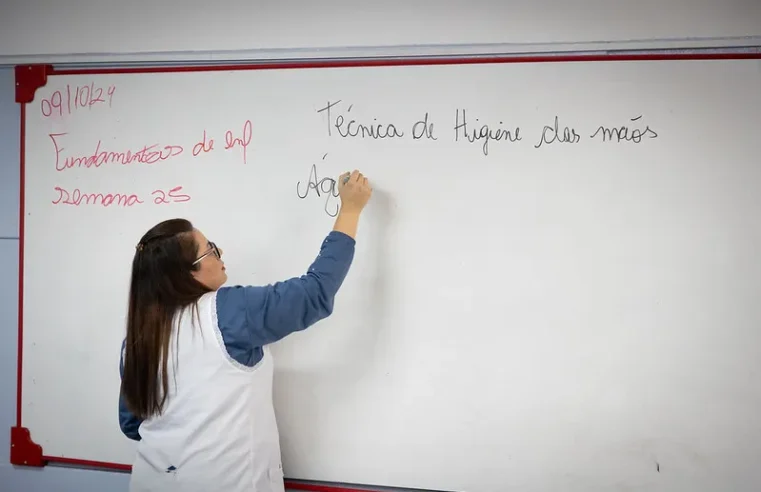 09/10/24
Fundamentos de enf
semana 25
Técnica de Higiene das mãos
Ág